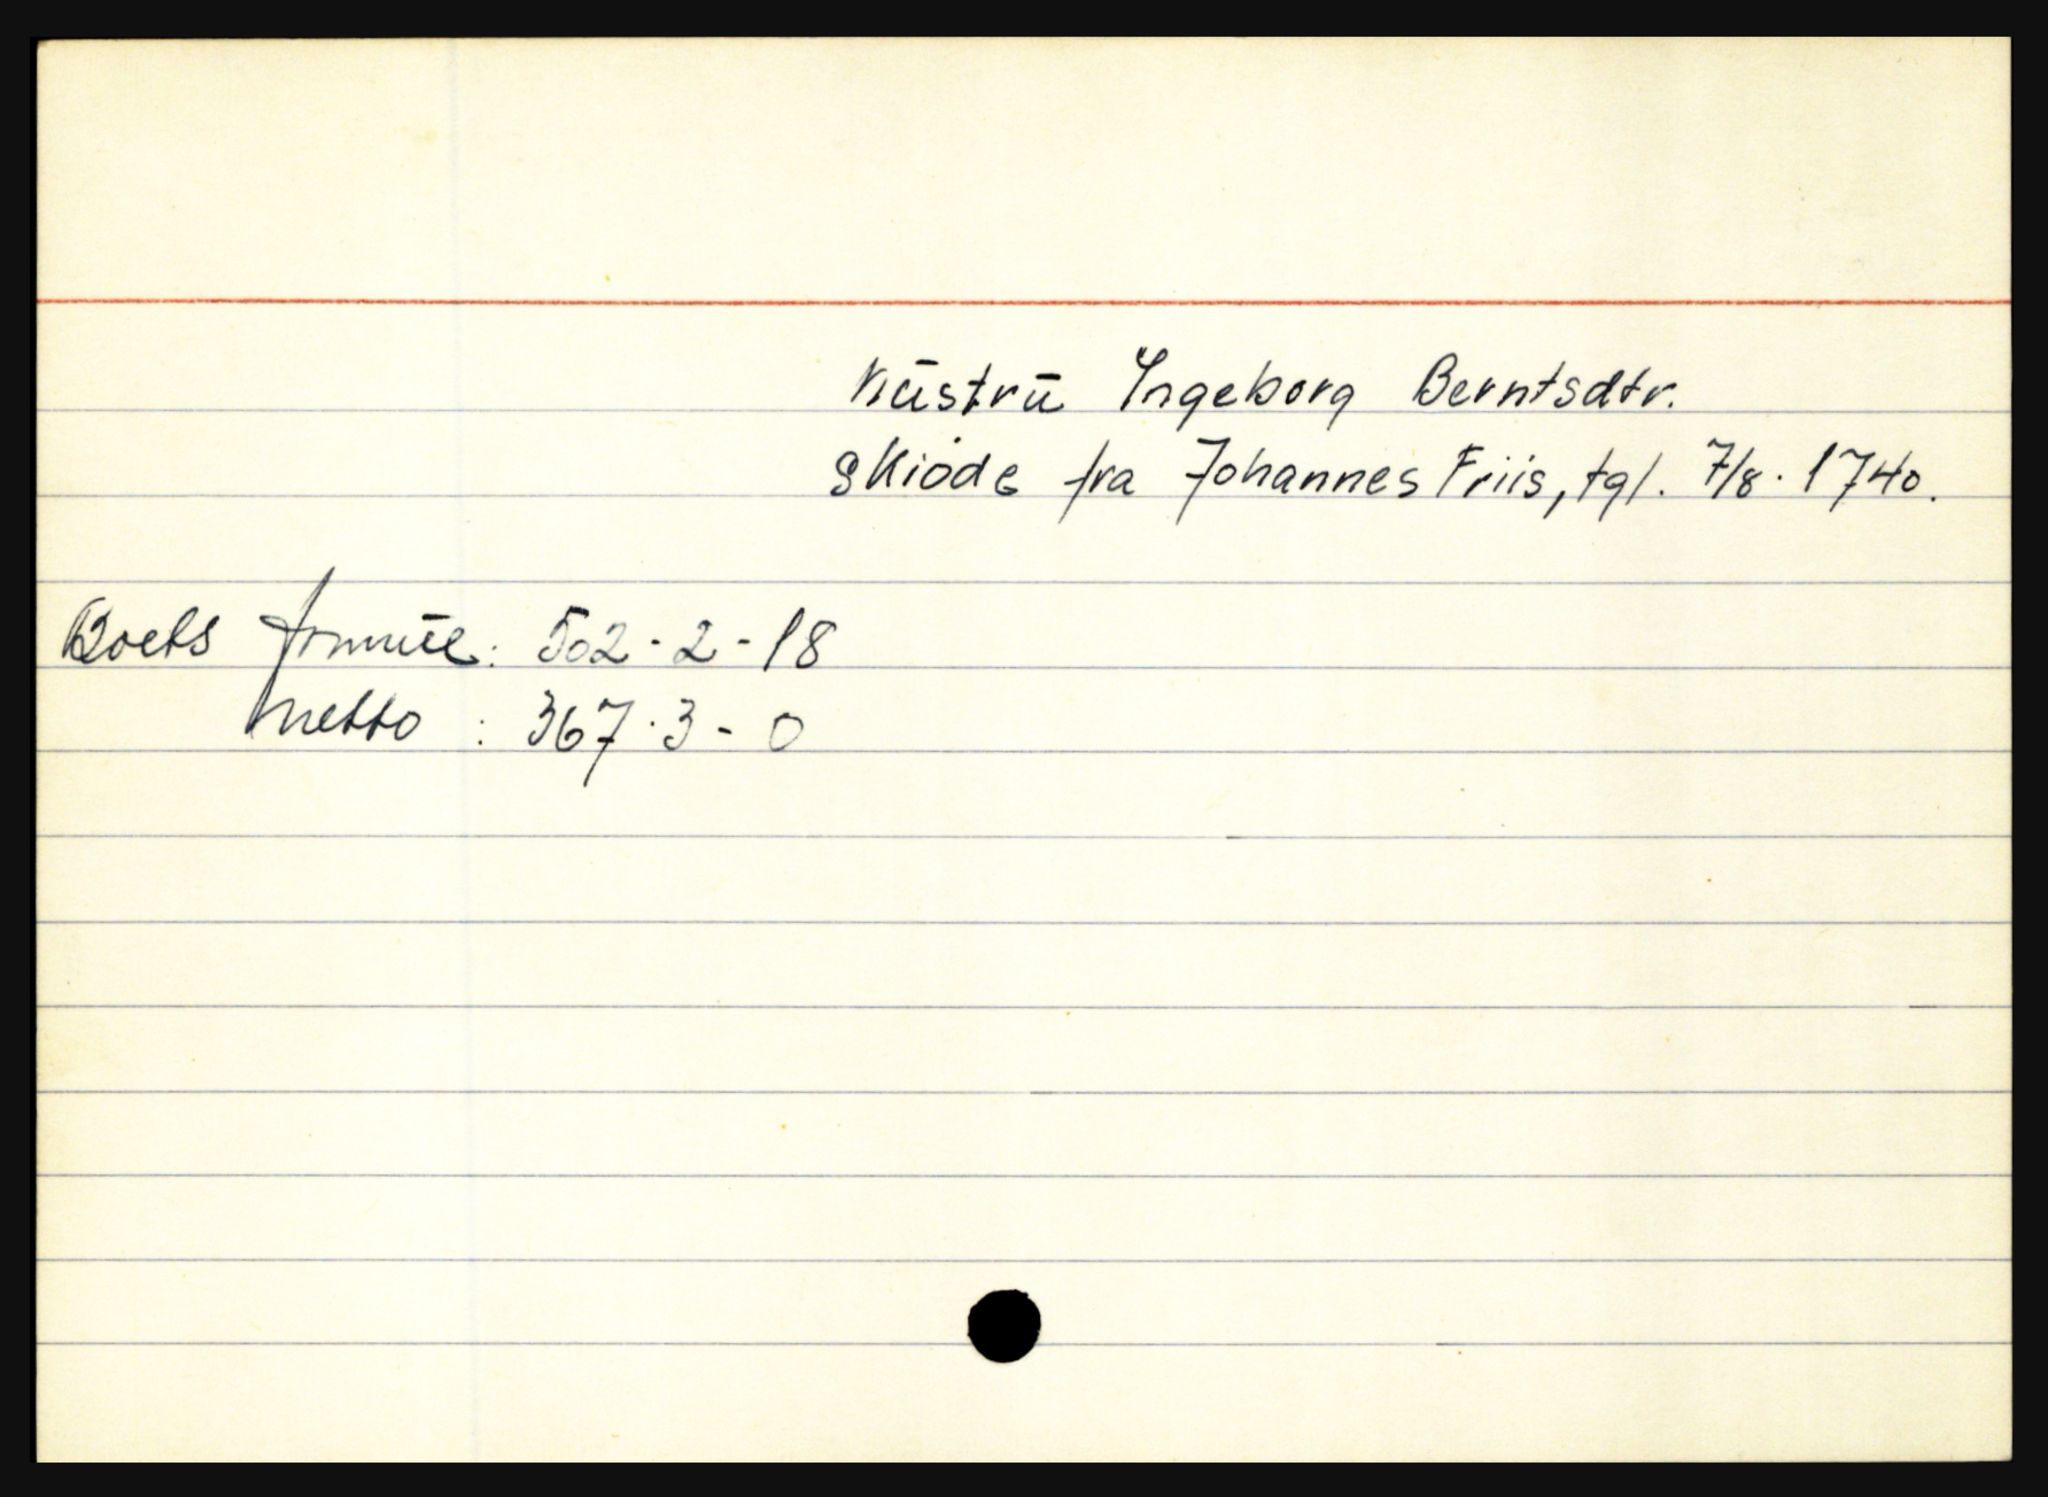 Kūstrū Ingeborg Berntsdtr.
Skiöde fra Johannes Friis, tgl. 7/8. 1740.
Boets formūe: 502-2-18
netto : 367-3-0